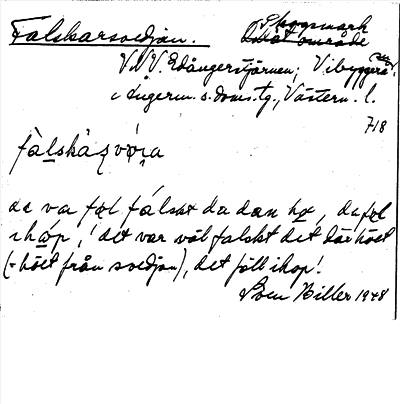 Falskarsvedjan. Skogsmark
V.N.V. Edångertjärnen; Vibyggerå
i Ångerm. s. doms. tg., Västern. l.
718
fàlskàʂvø̨ɪa
de va fǫl fálsxt da dan hø, de fǫl
ihóp, 'det var väl falskt det där höet
(= höet från svedjan), det föll ihop!
Sven Biller 1948